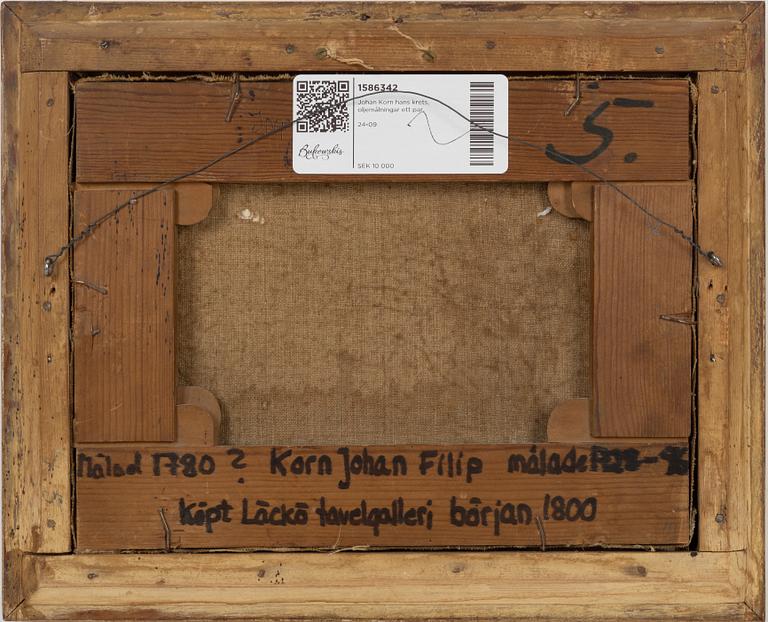 1586342
Johan Korn hans krets,
oljemålningar ett par,
24-09
Bukowskis
SEK 10 000
5.
Målad 1780 ? Korn Johan Filip målade 1728-96
Köpt Läckö tavelgalleri början 1800